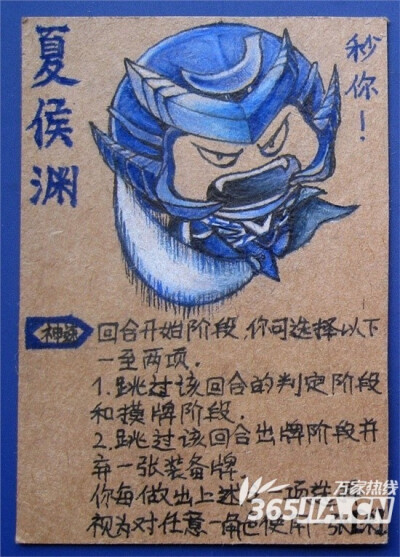 夏侯渊
秒你！
神速
回合开始阶段,你可选择以下
一至两项.
1.跳过该回合的判定阶段
和摸牌阶段.
2.跳过该回合出牌阶段并
弃一张装备牌.
你每做出上述 一项
视为对任意一角色使用一张
万家热线
365JIA.CN